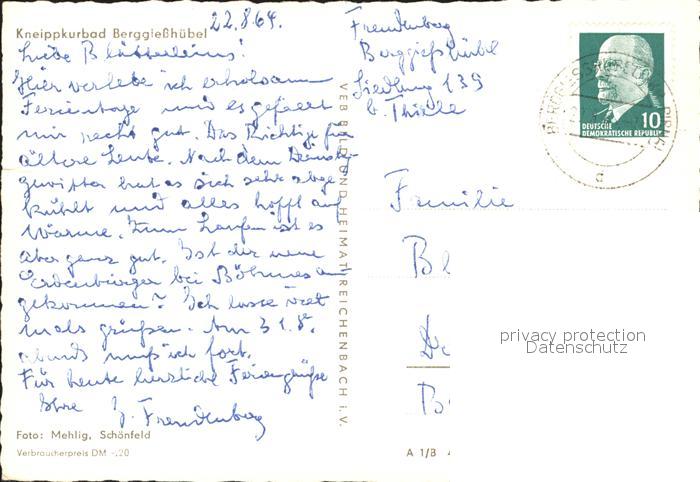 Kneippkurbad Berggießhübel
22.8.64.
Liebe
Hier verlebe ich erholsame
Ferientage und es gefällt
mir recht gut. Das Richtige für
ältere Leute. Nach dem
hat es sich sehr abge-
kühlt und alles hofft auf
Wärme. Zum Laufen ist es
aber ganz gut. Ist der neue
Erdenbürger bei Böhmes an
gekommen? Ich lasse viel
mals grüßen. Am 31.8.
abends muß ich fort.
Für heute herzliche Feriengrüße
Ihre G. Freudenberg
Foto: Mehlig, Schönfeld
Verbraucherpreis DM -.20
VEB BILD UND HEIMAT REICHENBACH i. V.
Freudenberg
Berggießhübel
Siedlung 139
b. Thiele
10
DEUTSCHE
DEMOKRATISCHE REPUBLIK
d
Familie
B
privacy protection
Datenschutz
A 1/B